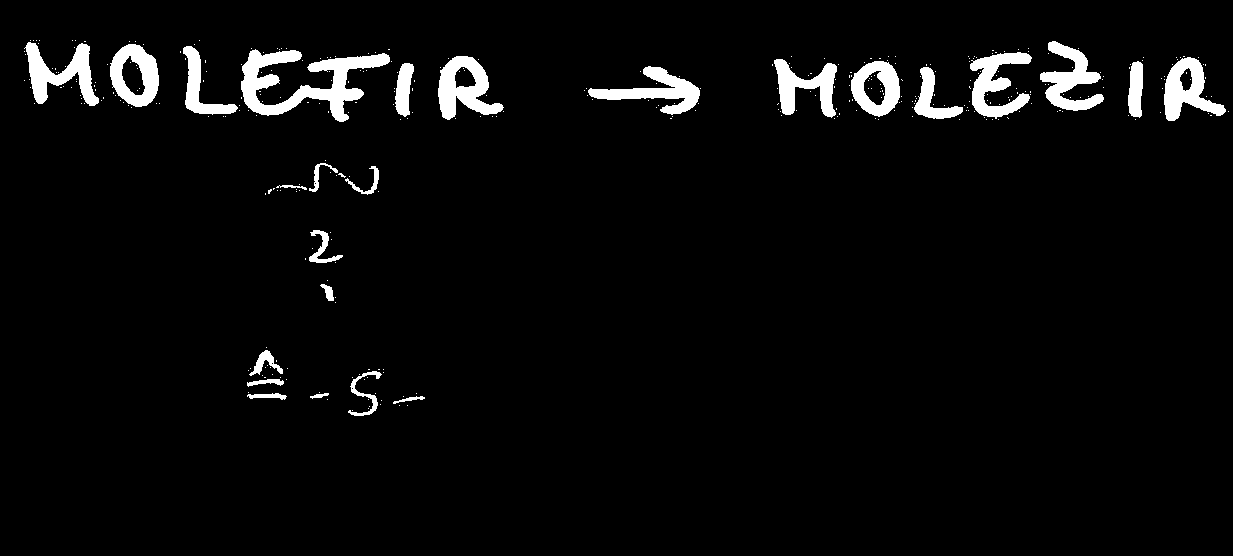 MOLEFIR → MOLEZIR
~
2
≙ -S-